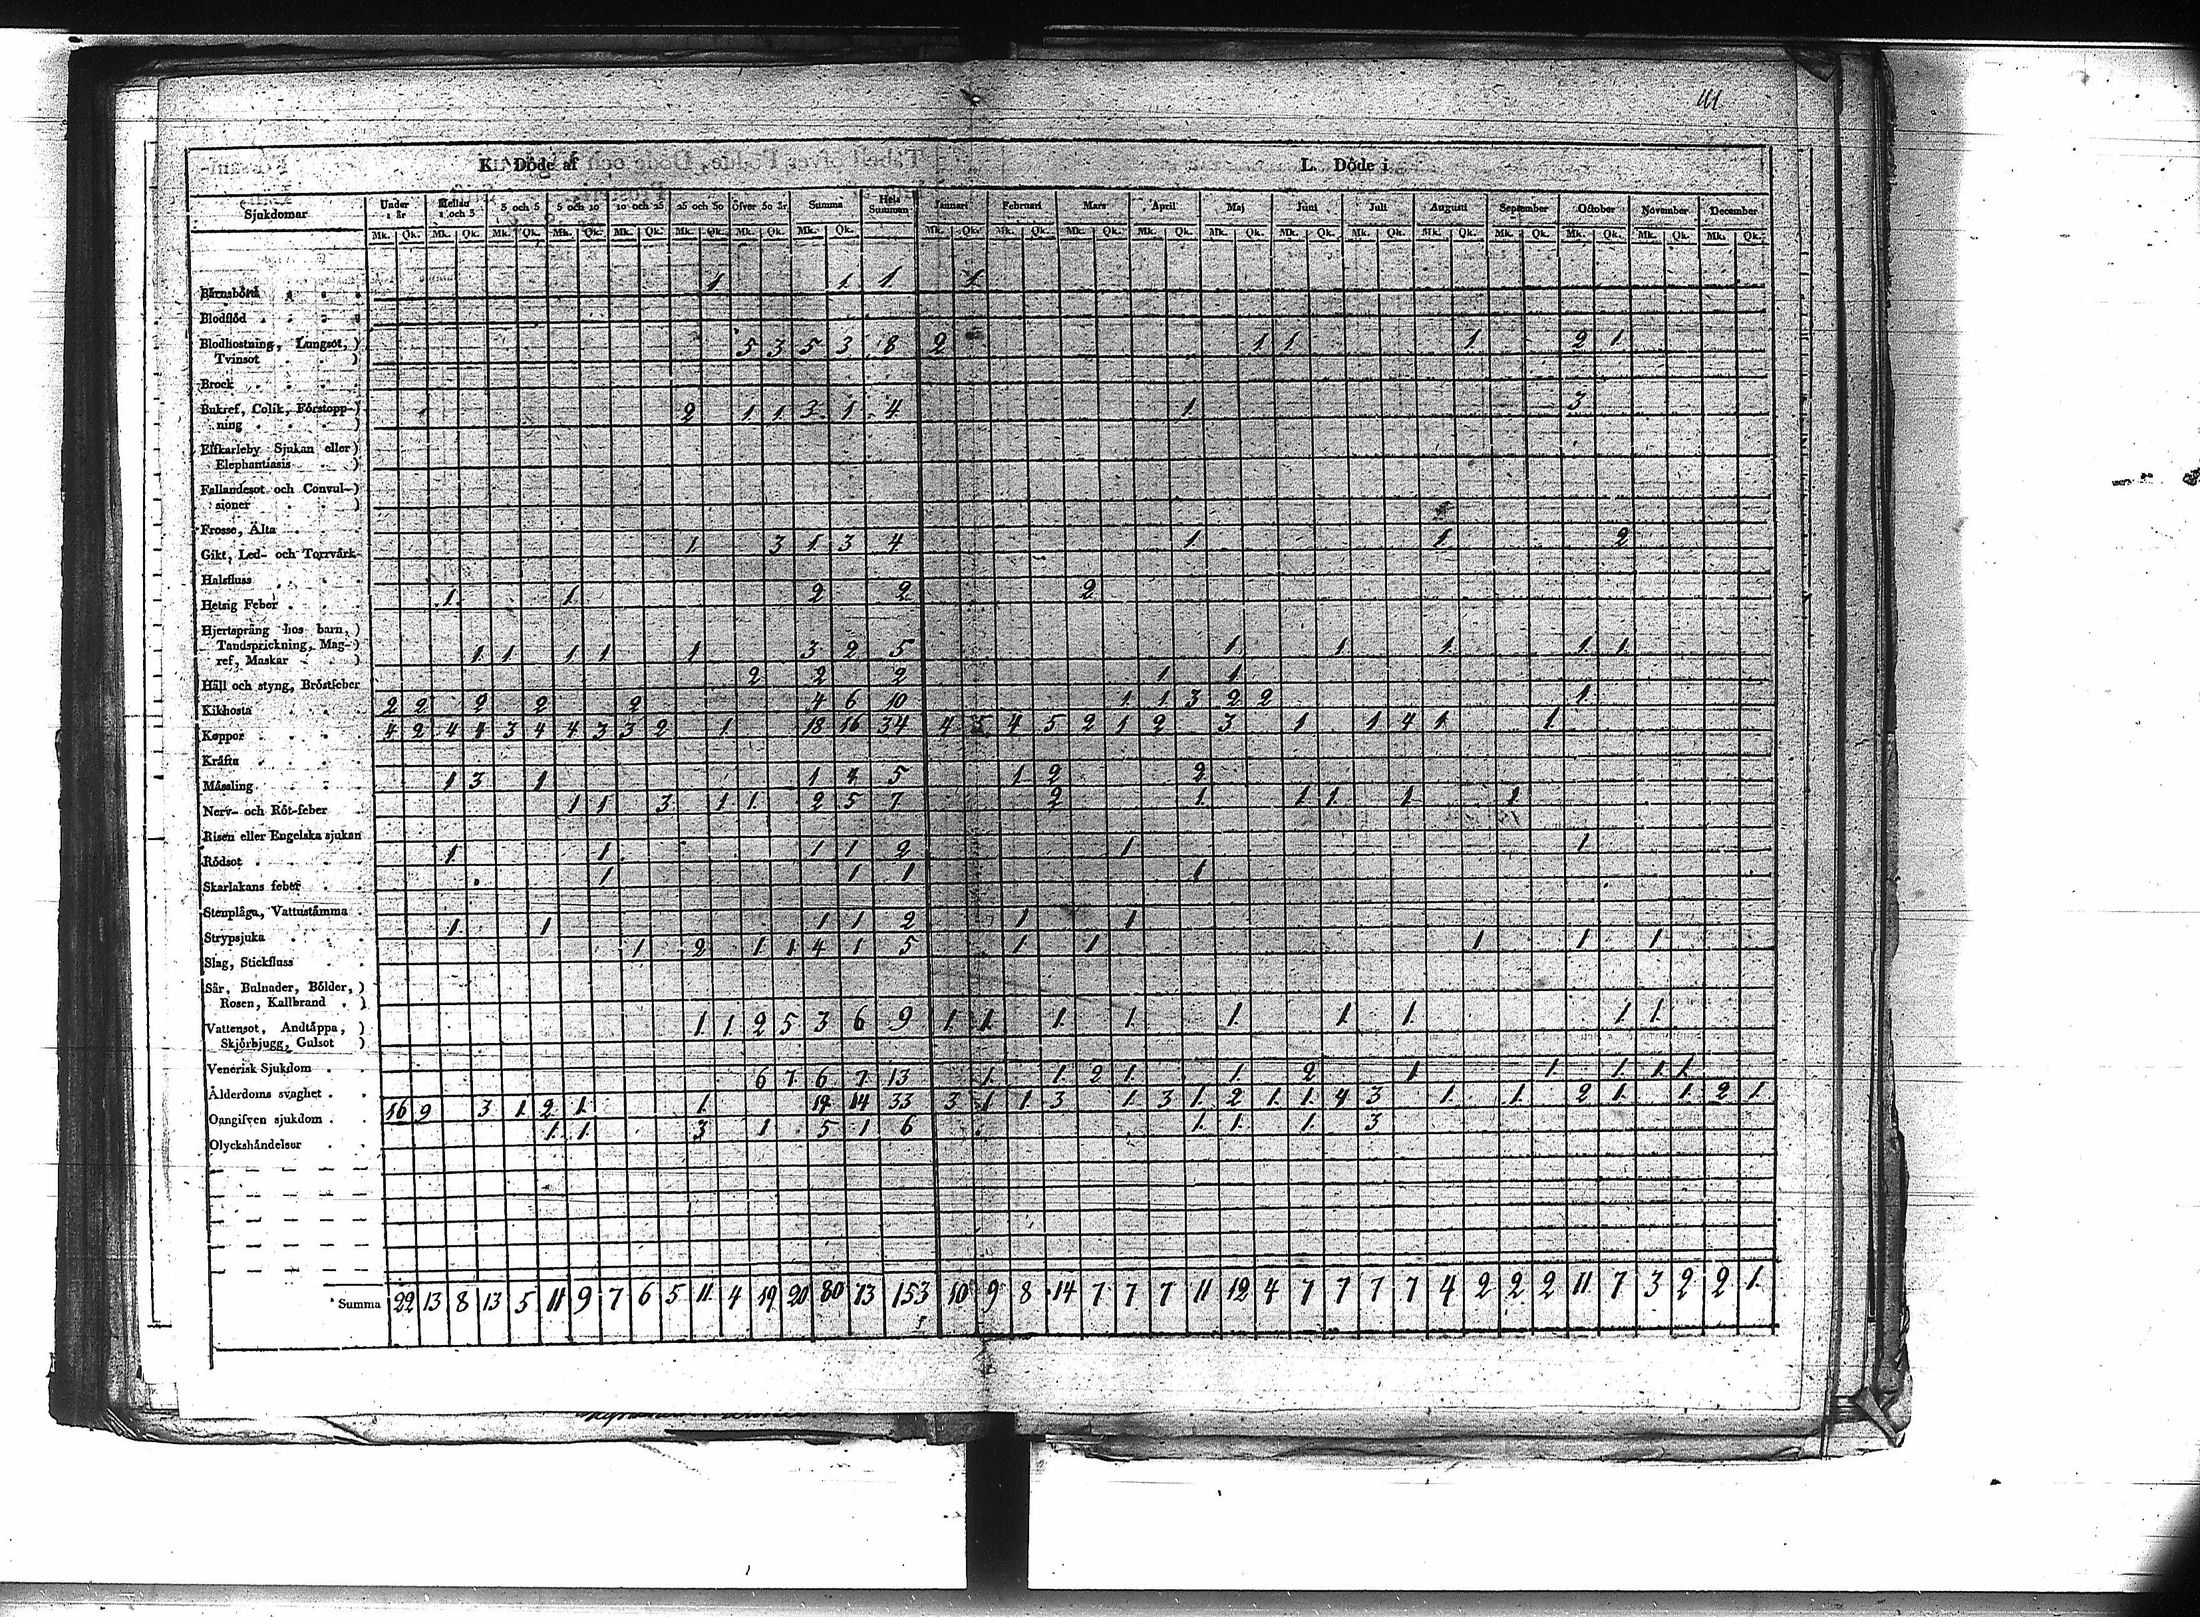 111
K. Döde af L. Döde i
Sjukdomar Under 1 år Mellan 1 och 3 3 och 5 5 och 10 10 och 25 25 och 50 öfver 50 år Summa Hela Summan Januari Februari Mars April Maj Juni Juli Augusti September October November December
Mk. Qk. Mk. Qk. Mk. Qk. Mk. Qk. Mk. Qk. Mk. Qk. Mk. Qk. Mk. Qk. Mk. Qk. Mk. Qk. Mk. Qk. Mk. Qk. Mk. Qk. Mk. Qk. Mk. Qk. Mk. Qk. Mk. Qk. Mk. Qk. Mk. Qk. Mk. Qk.
Barnsbörd 1 1 1 1
Blodflöd
Blodhostning, Lungsot,)
Tvinsot ) 5 3 5 3 8 2 1 1 1 2 1
Brock
Bukref, Colik, Förstopp-)
ning ) 2 1 1 3 1 4 1 3
Elfkarleby Sjukan eller)
Elephantiasis )
Fallandesot och Convul-)
sioner )
Frossa, Älta
Gikt, Led- och Torrvärk 1 3 1 3 4 1 1 2
Halsfluss
Hetsig Feber 1 1 2 2 2
Hjertspräng hos barn,)
Tandsprickning, Mag-)
ref, Maskar ) 1 1 1 1 1 3 2 5 1 1 1 1 1
Håll och styng, Bröstfeber 2 2 2 1 1
Kikhosta 2 2 2 2 2 4 6 10 1 1 3 2 2 1
Koppor 4 2 4 4 3 4 4 3 3 2 1 18 16 34 4 5 4 5 2 1 2 3 1 1 4 1 1
Kräfta
Mässling 1 3 1 1 4 5 1 2 2
Nerv- och Röt-feber 1 1 3 1 1 2 5 7 2 1 1 1 1 1
Risen eller Engelska sjukan
Rödsot 1 1 1 1 2 1 1
Skarlakans feber 1 1 1 1
Stenplåga, Vattustämma
Strypsjuka 1 1 1 1 2 1 1
Slag, Stickfluss 1 2 1 1 4 1 5 1 1 1 1 1
Sår, Bulnader, Bölder,)
Rosen, Kallbrand )
Vattensot, Andtäppa, )
Skjörbjugg, Gulsot ) 1 1 2 5 3 6 9 1 1 1 1 1 1 1 1 1
Venerisk Sjukdom
Ålderdoms svaghet 6 7 6 7 13 1 1 2 1 1 2 1 1 1 1 1
Oangifven sjukdom 16 9 3 1 2 1 1 19 14 33 3 1 1 3 1 3 1 2 1 1 4 3 1 1 2 1 1 2 1
Olyckshändelser 1 1 3 1 5 1 6 1 1 1 3
Summa 22 13 8 13 5 11 9 7 6 5 11 4 19 20 80 73 153 10 9 8 14 7 7 7 11 12 4 7 7 7 7 4 2 2 2 11 7 3 2 2 1